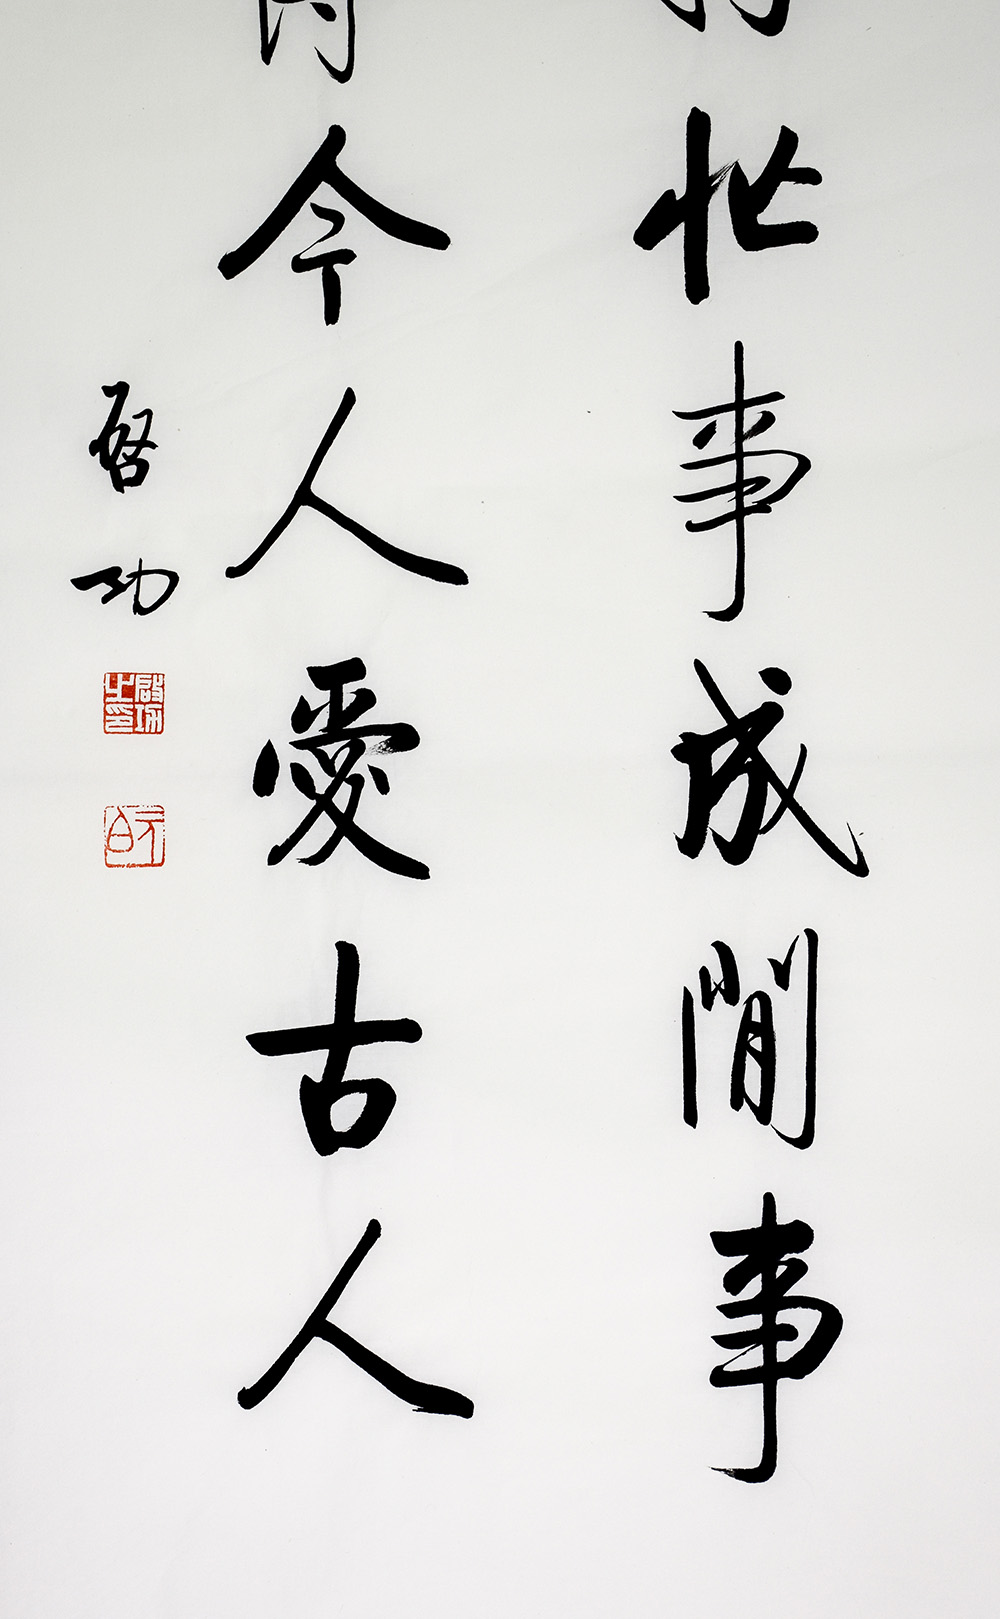 忙事成閒事
今人愛古人
啓功
啓功之印
元白